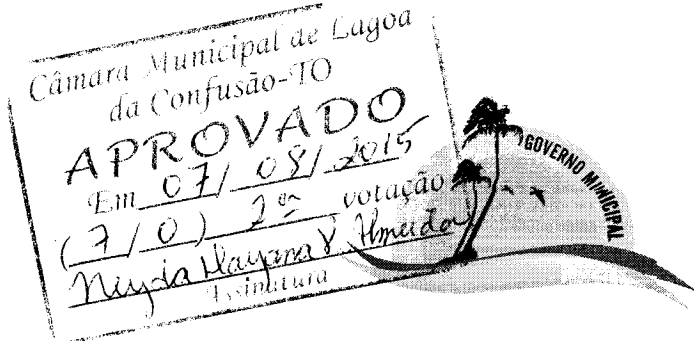 Câmara Municipal de Lagoa
da Confusão-TO
APROVADO
Em 07/ 08/ 2015
(7/0) 2ª votação
Assinatura
GOVERNO MUNICIPAL